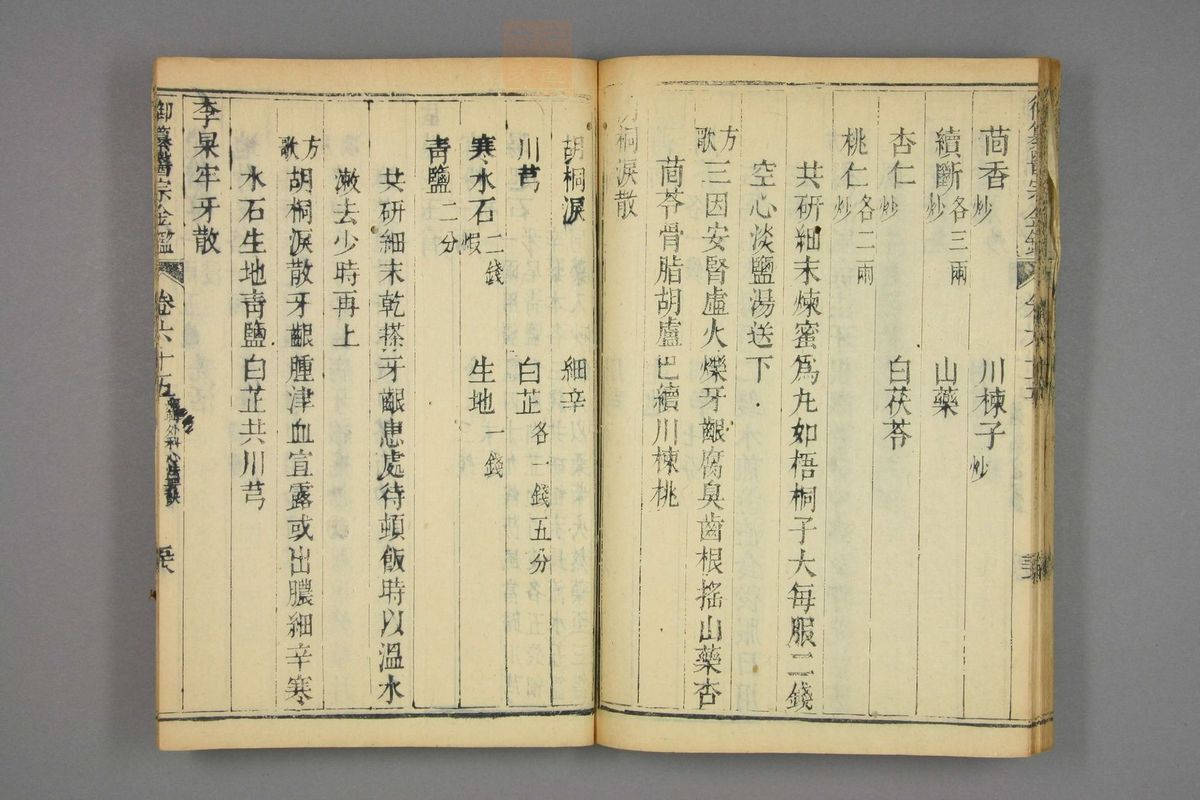 茴香炒 川楝子炒
續斷炒各三兩 山藥
杏仁炒 白茯苓
桃仁炒各二兩
共研細末煉蜜爲丸如梧桐子大每服二錢
空心淡鹽湯送下
方歌 三因安腎虛火爍牙齦腐臭齒根搖山藥杏
茴苓骨脂胡廬巴續川楝桃
桐淚散
胡桐淚 細辛
川芎 白芷各一錢五分
寒水石煅二錢 生地一錢
靑鹽二分
共研細末乾搽牙齦患處待頓飯時以溫水
漱去少時再上
方歌 胡桐淚散牙齦腫津血宣露或出膿細辛寒
水石生地靑鹽白芷共川芎
李杲牢牙散
御纂醫宗金鑑 卷六十五 外科心法要訣